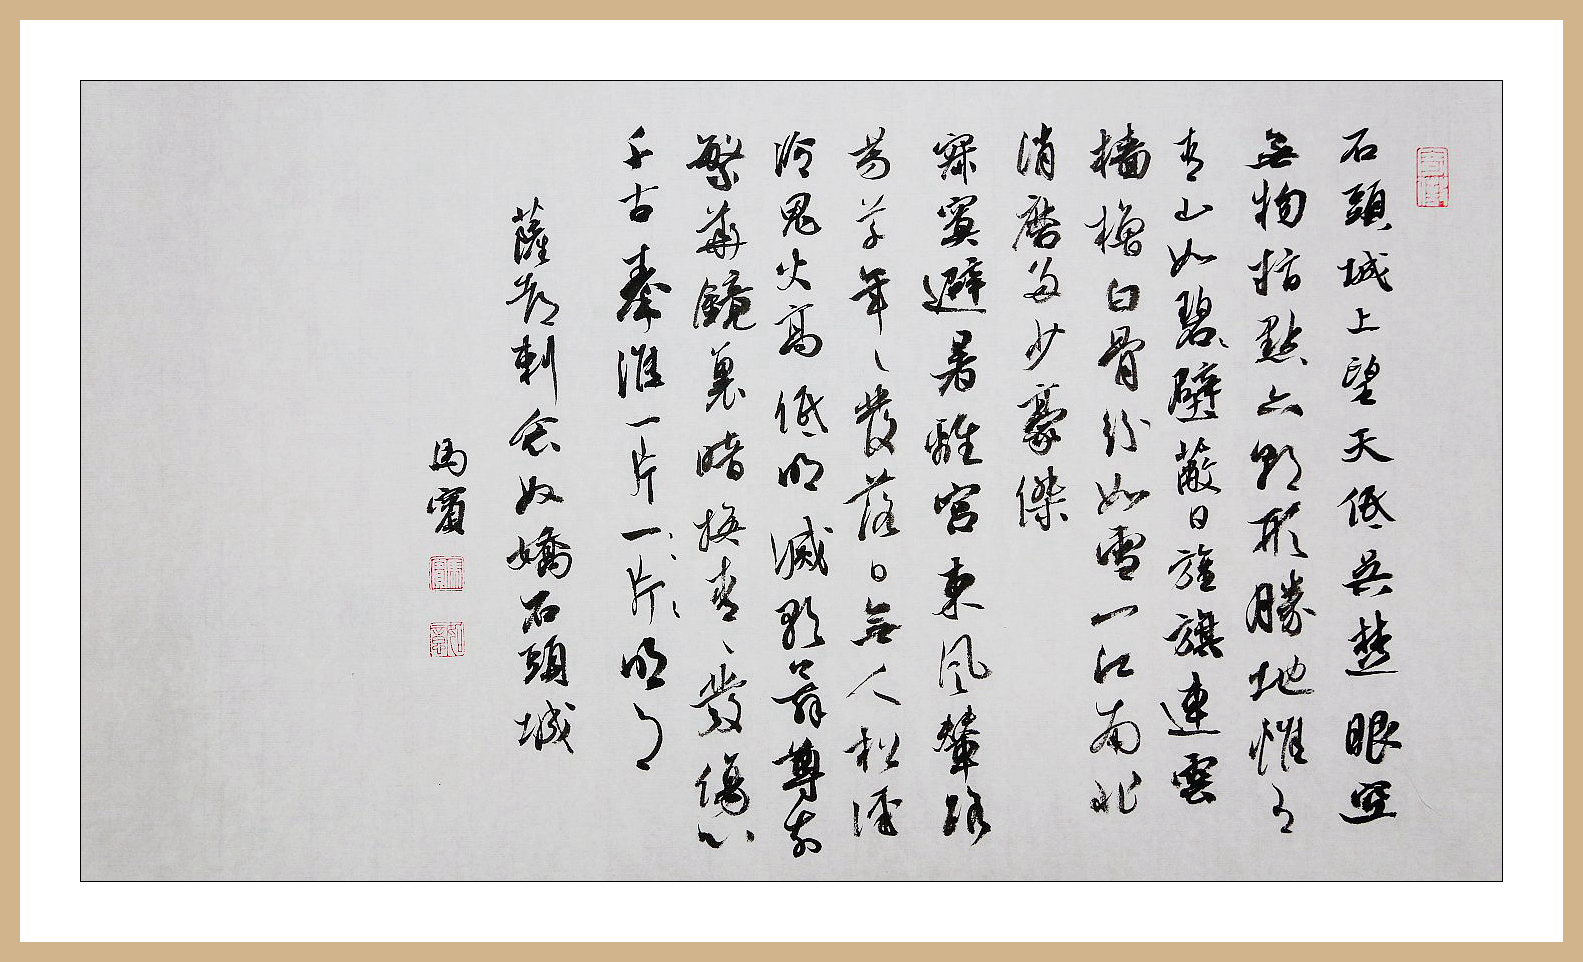 石頭城上望天低吳楚眼空
無物指點六朝形勝地惟有
青山如碧壁蔽日旌旗連雲
檣櫓白骨紛如雪一江南北
消磨多少豪傑
寂寞避暑離宮東風輦路
芳草年々發落日無人松徑
冷鬼火高低明滅歌舞尊前
繁華鏡裏暗換青々髮傷心
千古秦淮一片一片明月
薩都剌念奴嬌石頭城
馬賓